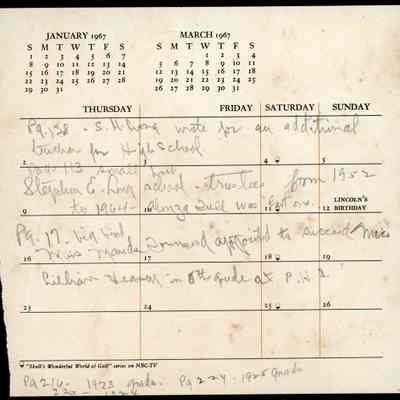 JANUARY 1967
S M T W T F S
1 2 3 4 5 6 7
8 9 10 11 12 13 14
15 16 17 18 19 20 21
22 23 24 25 26 27 28
29 30 31
MARCH 1967
S M T W T F S
1 2 3 4
5 6 7 8 9 10 11
12 13 14 15 16 17 18
19 20 21 22 23 24 25
26 27 28 29 30 31
THURSDAY FRIDAY SATURDAY SUNDAY
Pg. 138 - S. H. Long wrote for an additional
teacher for High School
2 3 4 5
113 small
Stephen E. Long school - trustee from 1952
to 1964 - was last one.
9 10 11 LINCOLN'S 12 BIRTHDAY
Pg. 17 -
Miss Maude appointed to succeed Miss
16 17 18 19
Lillian in 8th grade at P.H.S.
23 24 25 26
"Shell's Wonderful World of Golf" series on NBC-TV
Pg 216 - 1923 grads. Pg 224 - 1925 grads
- 1924